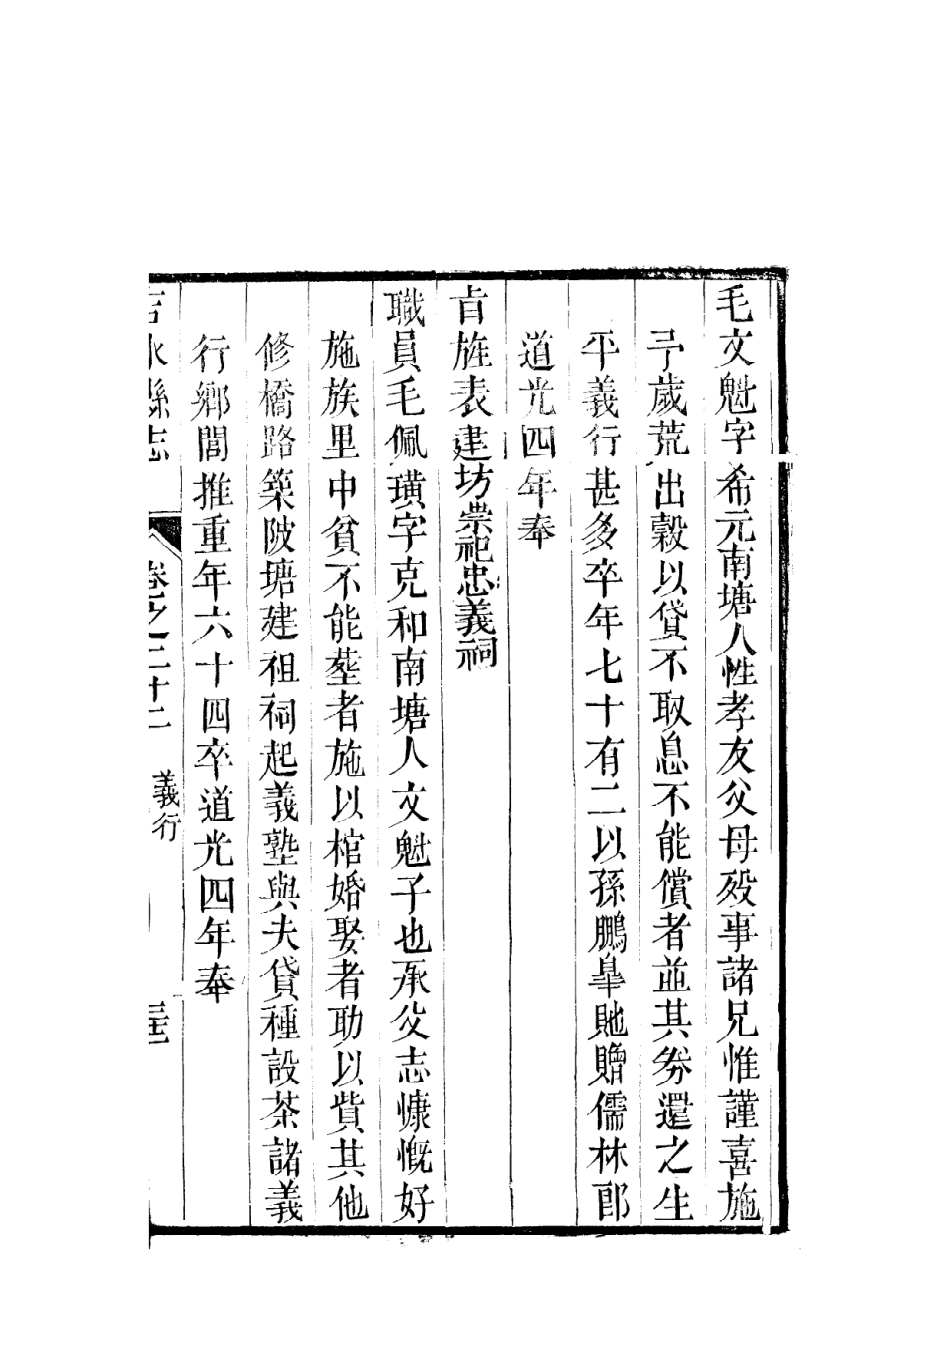 毛文魁字希元南塘人性孝友父母歿事諸兄惟謹喜施
予歲荒出穀以貸不取息不能償者並其券還之生
平義行甚多卒年七十有二以孫鵬臯貤贈儒林郎
道光四年奉
旨旌表建坊崇祀忠義祠
職員毛佩璜字克和南塘人文魁子也承父志慷慨好
施族里中貧不能塟者施以棺婚娶者助以貲其他
修橋路築陂塘建祖祠起義塾與夫貸種設茶諸義
行鄉閭推重年六十四卒道光四年奉
吉水縣志 卷之三十二 義行 三